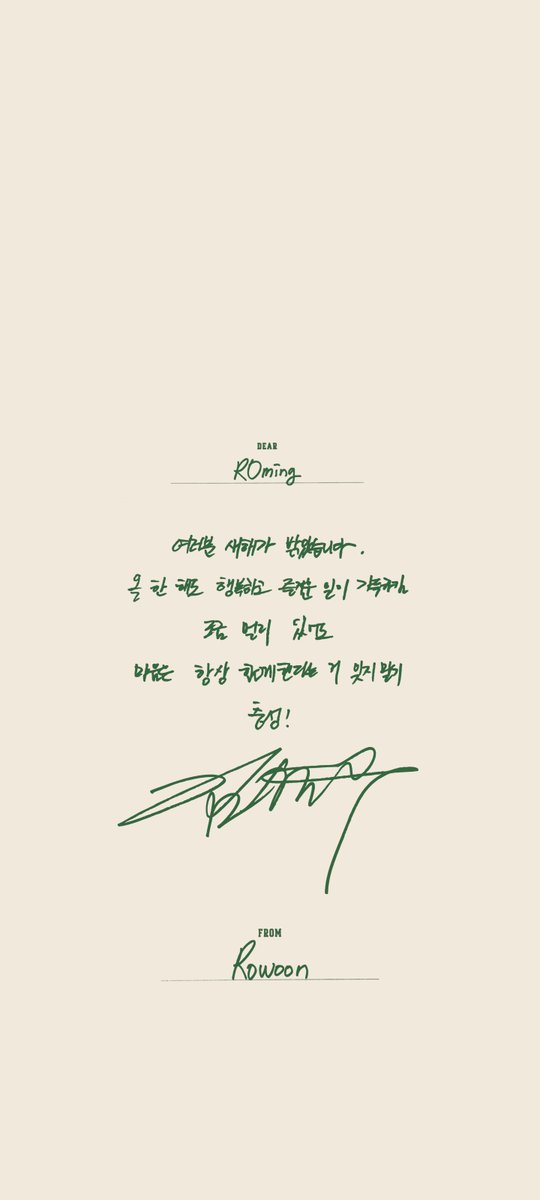 DEAR
ROming
여러분 새해가 밝았습니다.
올 한 해도 행복하고 즐거운 일이 가득하길
조금 멀리 있어도
마음은 항상 함께한다는 거 잊지 말기
충성!
FROM
Rowoon